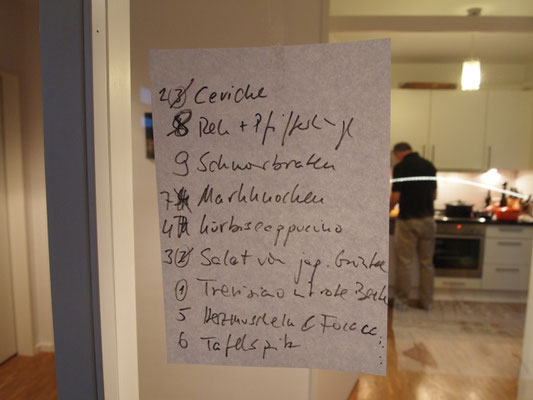 2 (3) Ceviche
8 Reh + Pfifferlinge
9 Schmorbraten
7 Markknochen
4 Kürbiscappuccino
3 (2) Salat von jap.
(1) Trevisano rote
5 Herzmuscheln & Focacc...
6 Tafelspitz